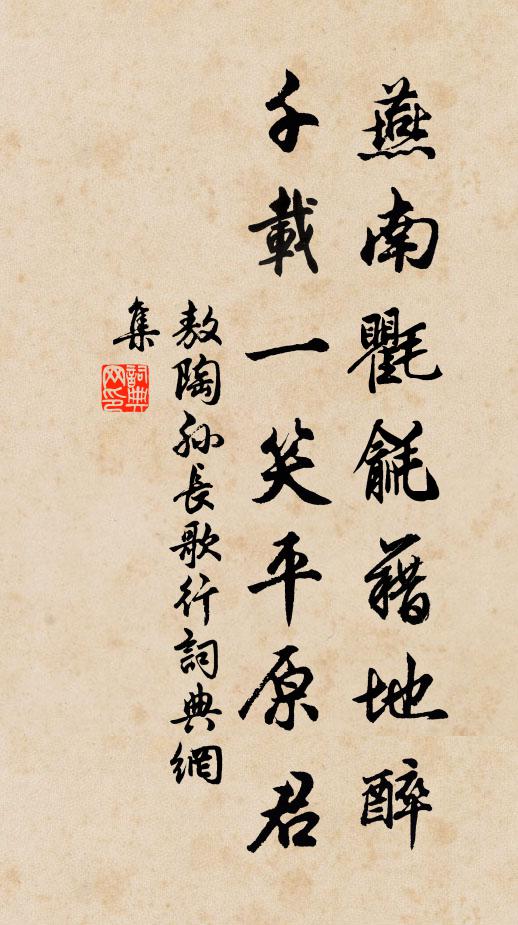 燕南氍毹藉地醉
千載一笑平原君
敖陶孫長歌行詞典網
集
詞典
网印